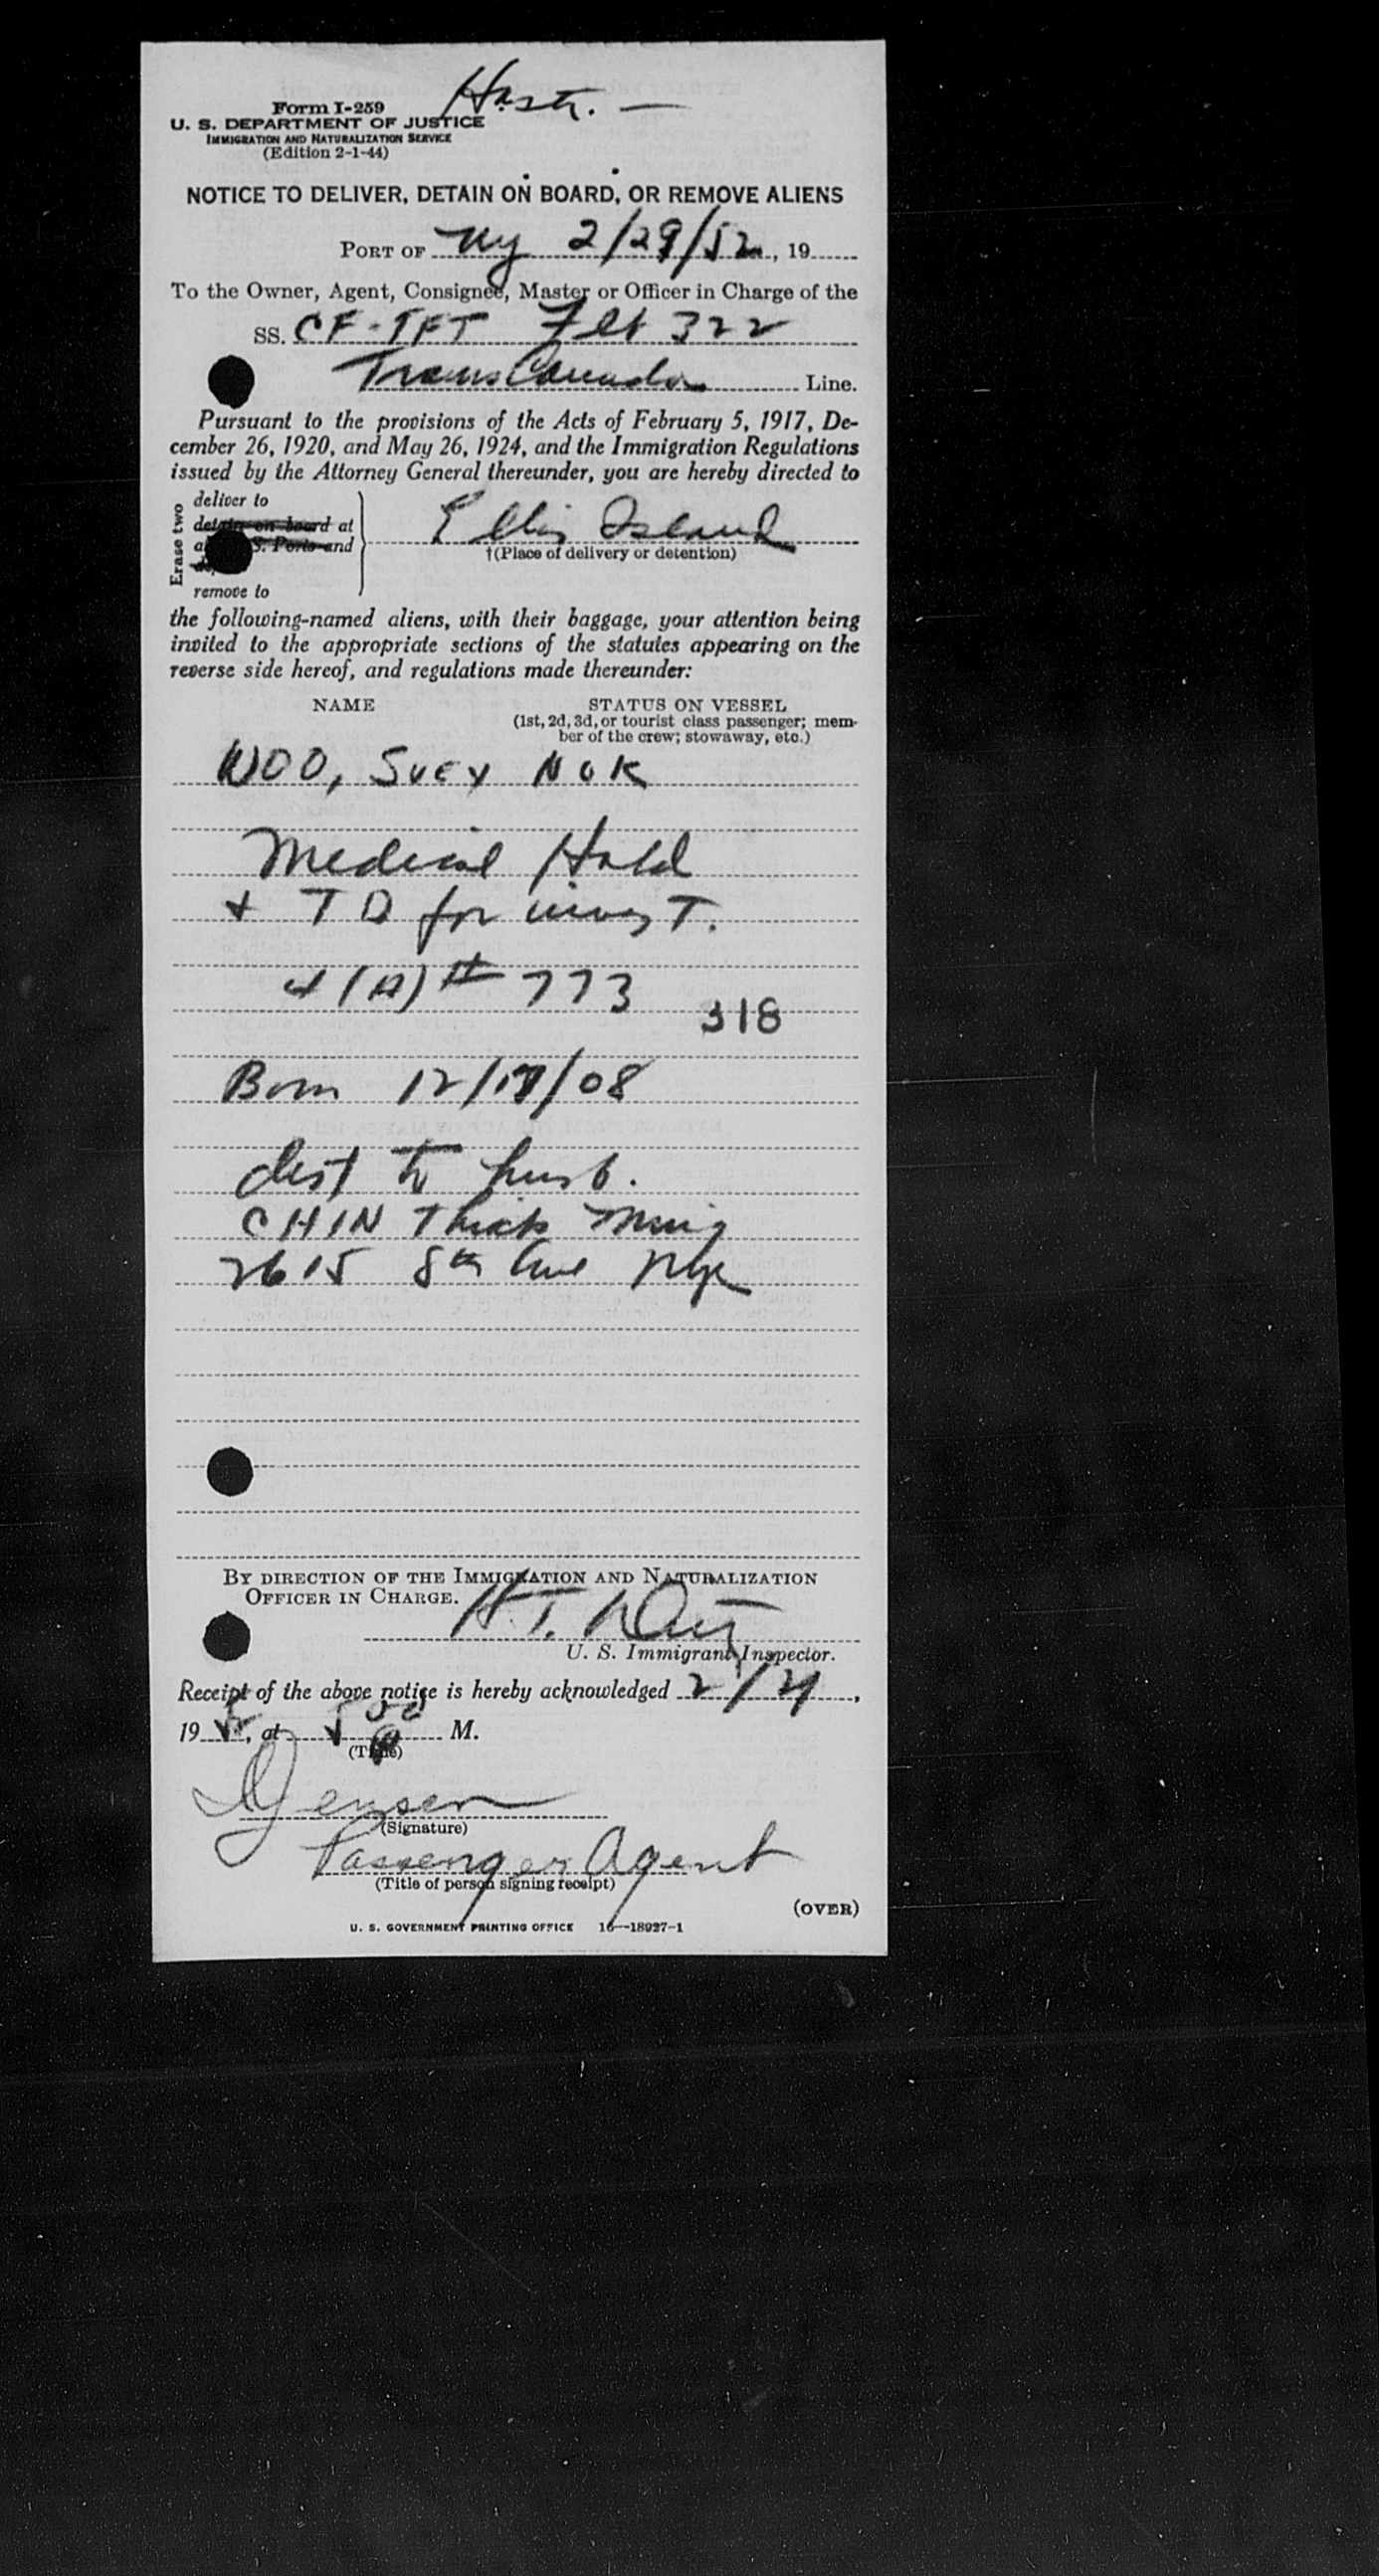 Form I-259
U. S. DEPARTMENT OF JUSTICE
IMMIGRATION AND NATURALIZATION SERVICE
(Edition 2-1-44)
NOTICE TO DELIVER, DETAIN ON BOARD, OR REMOVE ALIENS
PORT OF NY 2/29/52, 19
To the Owner, Agent, Consignee, Master or Officer in Charge of the
SS. CF-TFT Flt 322
Trans Canada Line.
Pursuant to the provisions of the Acts of February 5, 1917, De-
cember 26, 1920, and May 26, 1924, and the Immigration Regulations
issued by the Attorney General thereunder, you are hereby directed to
Erase two
deliver to
detain on board at
S. Ports and
remove to
Ellis Island
†(Place of delivery or detention)
the following-named aliens, with their baggage, your attention being
invited to the appropriate sections of the statutes appearing on the
reverse side hereof, and regulations made thereunder:
NAME STATUS ON VESSEL
(1st, 2d, 3d, or tourist class passenger; mem-
ber of the crew; stowaway, etc.)
WOO, SUEY NOK
Medical Hold
+ T D for invest.
4(A) # 773
318
Born 12/17/08
dest to husb.
CHIN Thick Ming
2615 8th Ave NYC
BY DIRECTION OF THE IMMIGRATION AND NATURALIZATION
OFFICER IN CHARGE.
H.T.
U. S. Immigrant Inspector.
Receipt of the above notice is hereby acknowledged 2/29,
19 52, at 5 00 P M.
(Time)
Jensen
(Signature)
Passenger Agent
(Title of person signing receipt)
(OVER)
U. S. GOVERNMENT PRINTING OFFICE 16—18927-1